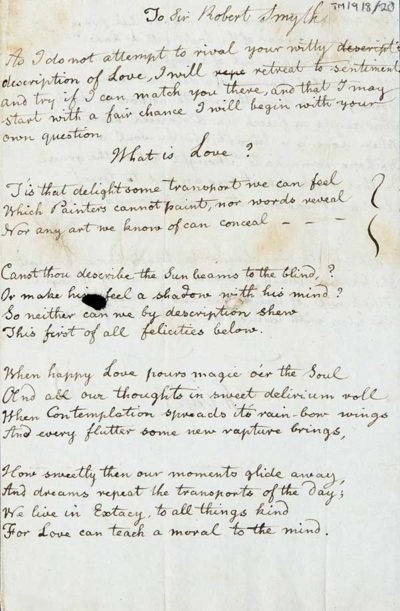 To Sir Robert Smyth
TM1918/20
As I do not attempt to rival your witty descript
description of Love, I will repe retreat to sentiment
and try if I can match you there, and that I may
start with a fair chance I will begin with your
own question
What is Love?
Tis that delightsome transport we can feel
Which Painters cannot paint, nor words reveal
Nor any art we know of can conceal - - -
Canst thou describe the Sun beams to the blind, ?
Or make him feel a shadow with his mind?
So neither can we by description shew
This first of all felicities below.
When happy Love pours magic o'er the Soul
And all our thoughts in sweet delirium roll
When Contemplation spreads its rain-bow wings
And every flutter some new rapture brings,
How sweetly then our moments glide away,
And dreams repeat the transports of the day;
We live in Extacy, to all things kind
For Love can teach a moral to the mind.